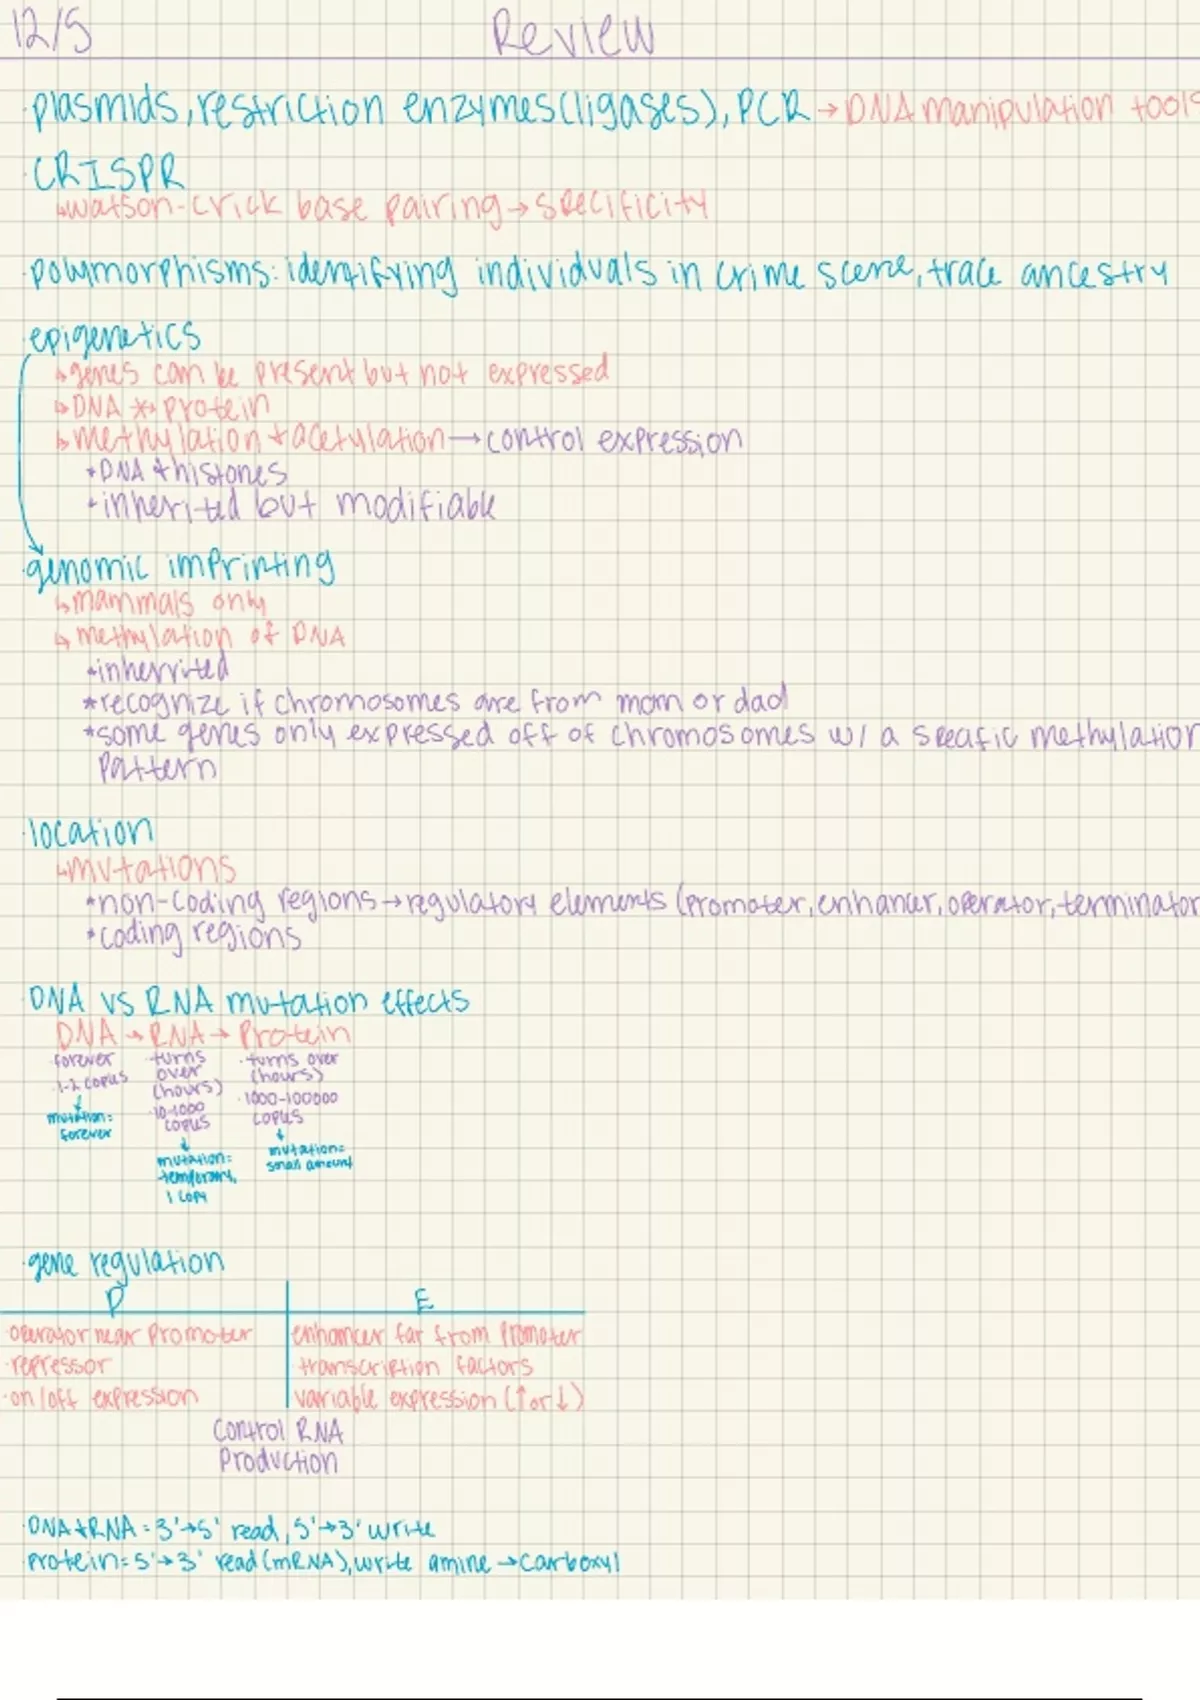 12/5 Review
·plasmids, restriction enzymes(ligases), PCR → DNA manipulation tools
·CRISPR
↳watson-crick base pairing → specificity
·polymorphisms: identifying individuals in crime scene, trace ancestry
·epigenetics
↳genes can be present but not expressed
↳DNA protein
↳methylation + acetylation → control expression
*DNA + histones
*inherited but modifiable
·genomic imprinting
↳mammals only
↳methylation of DNA
*inherrited
*recognize if chromosomes are from mom or dad
*some genes only expressed off of chromosomes w/ a specific methylation
pattern
·location
↳mutations
*non-coding regions → regulatory elements (promoter, enhancer, operator, terminator
*coding regions
·DNA vs RNA mutation effects
DNA → RNA → Protein
·forever ·turns over (hours) ·turns over (hours)
·1-2 copies ·10-1000 copies ·1000-100000 copies
mutation: forever mutation: temporary, 1 copy mutation: small amount
·gene regulation
P E
·operator near promoter enhancer far from promoter
·repressor ·transcription factors
·on/off expression variable expression (↑or↓)
Control RNA
Production
·DNA+RNA = 3'→5' read, 5'→3' write
·Protein = 5'→3' read (mRNA), write amine → carboxyl